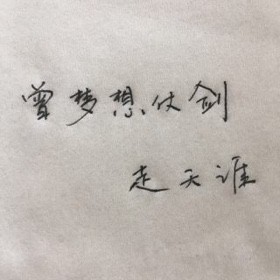 曾梦想仗剑
走天涯